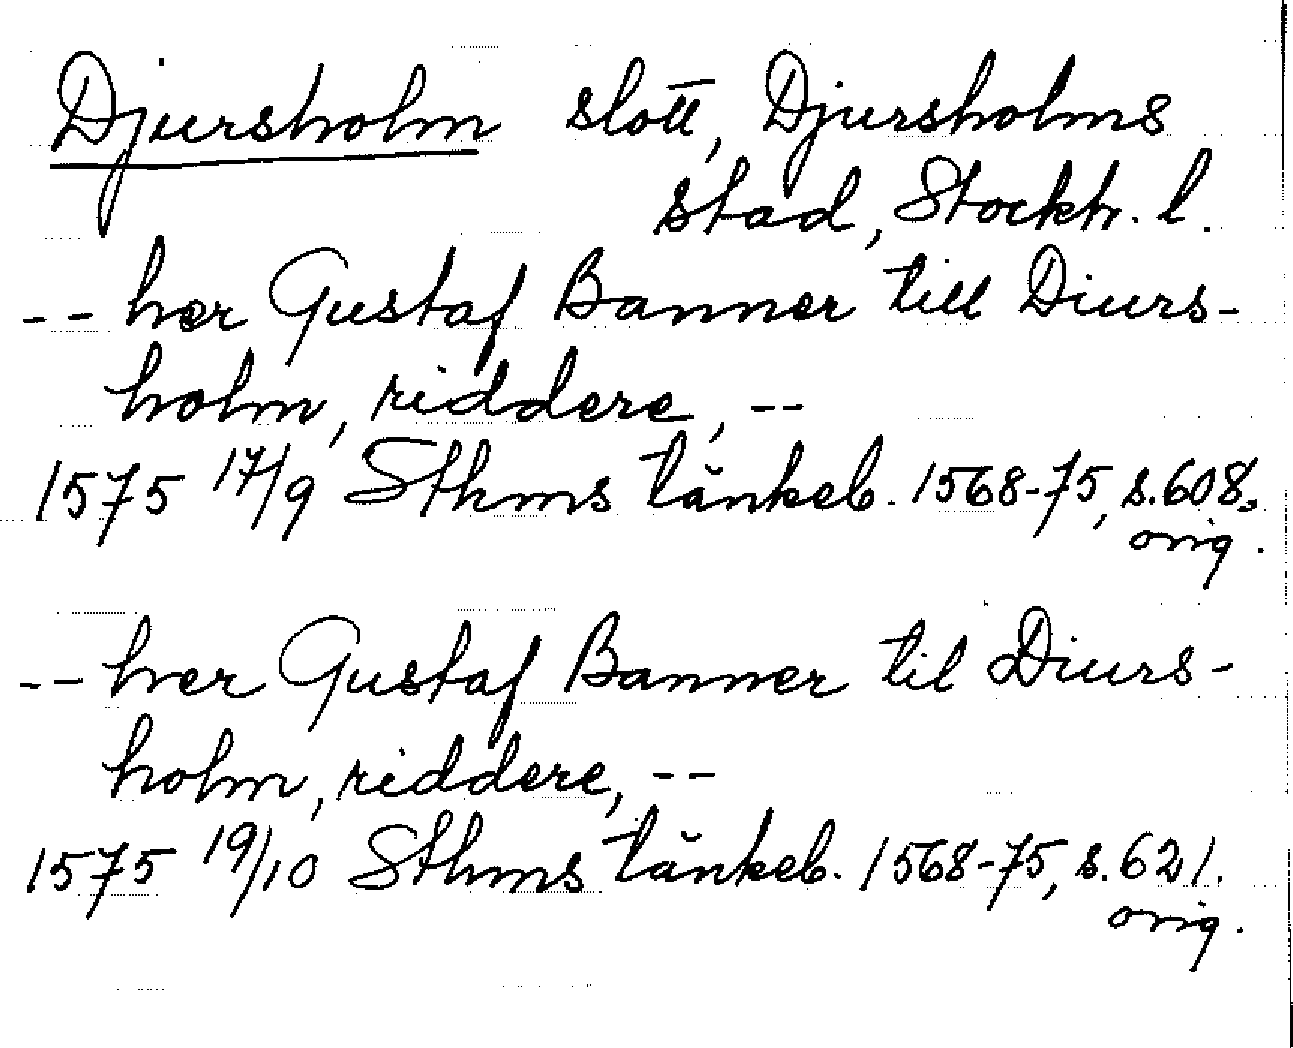 Djursholm slott, Djursholms
stad, Stockh. l.
-- her Gustaf Banner till Diurs-
holm, riddere, --
1575 17/9 Sthms tänkeb. 1568-75, s. 608,
orig.
-- her Gustaf Banner til Diurs-
holm, riddere, --
1575 19/10 Sthms tänkeb. 1568-75, s. 621.
orig.